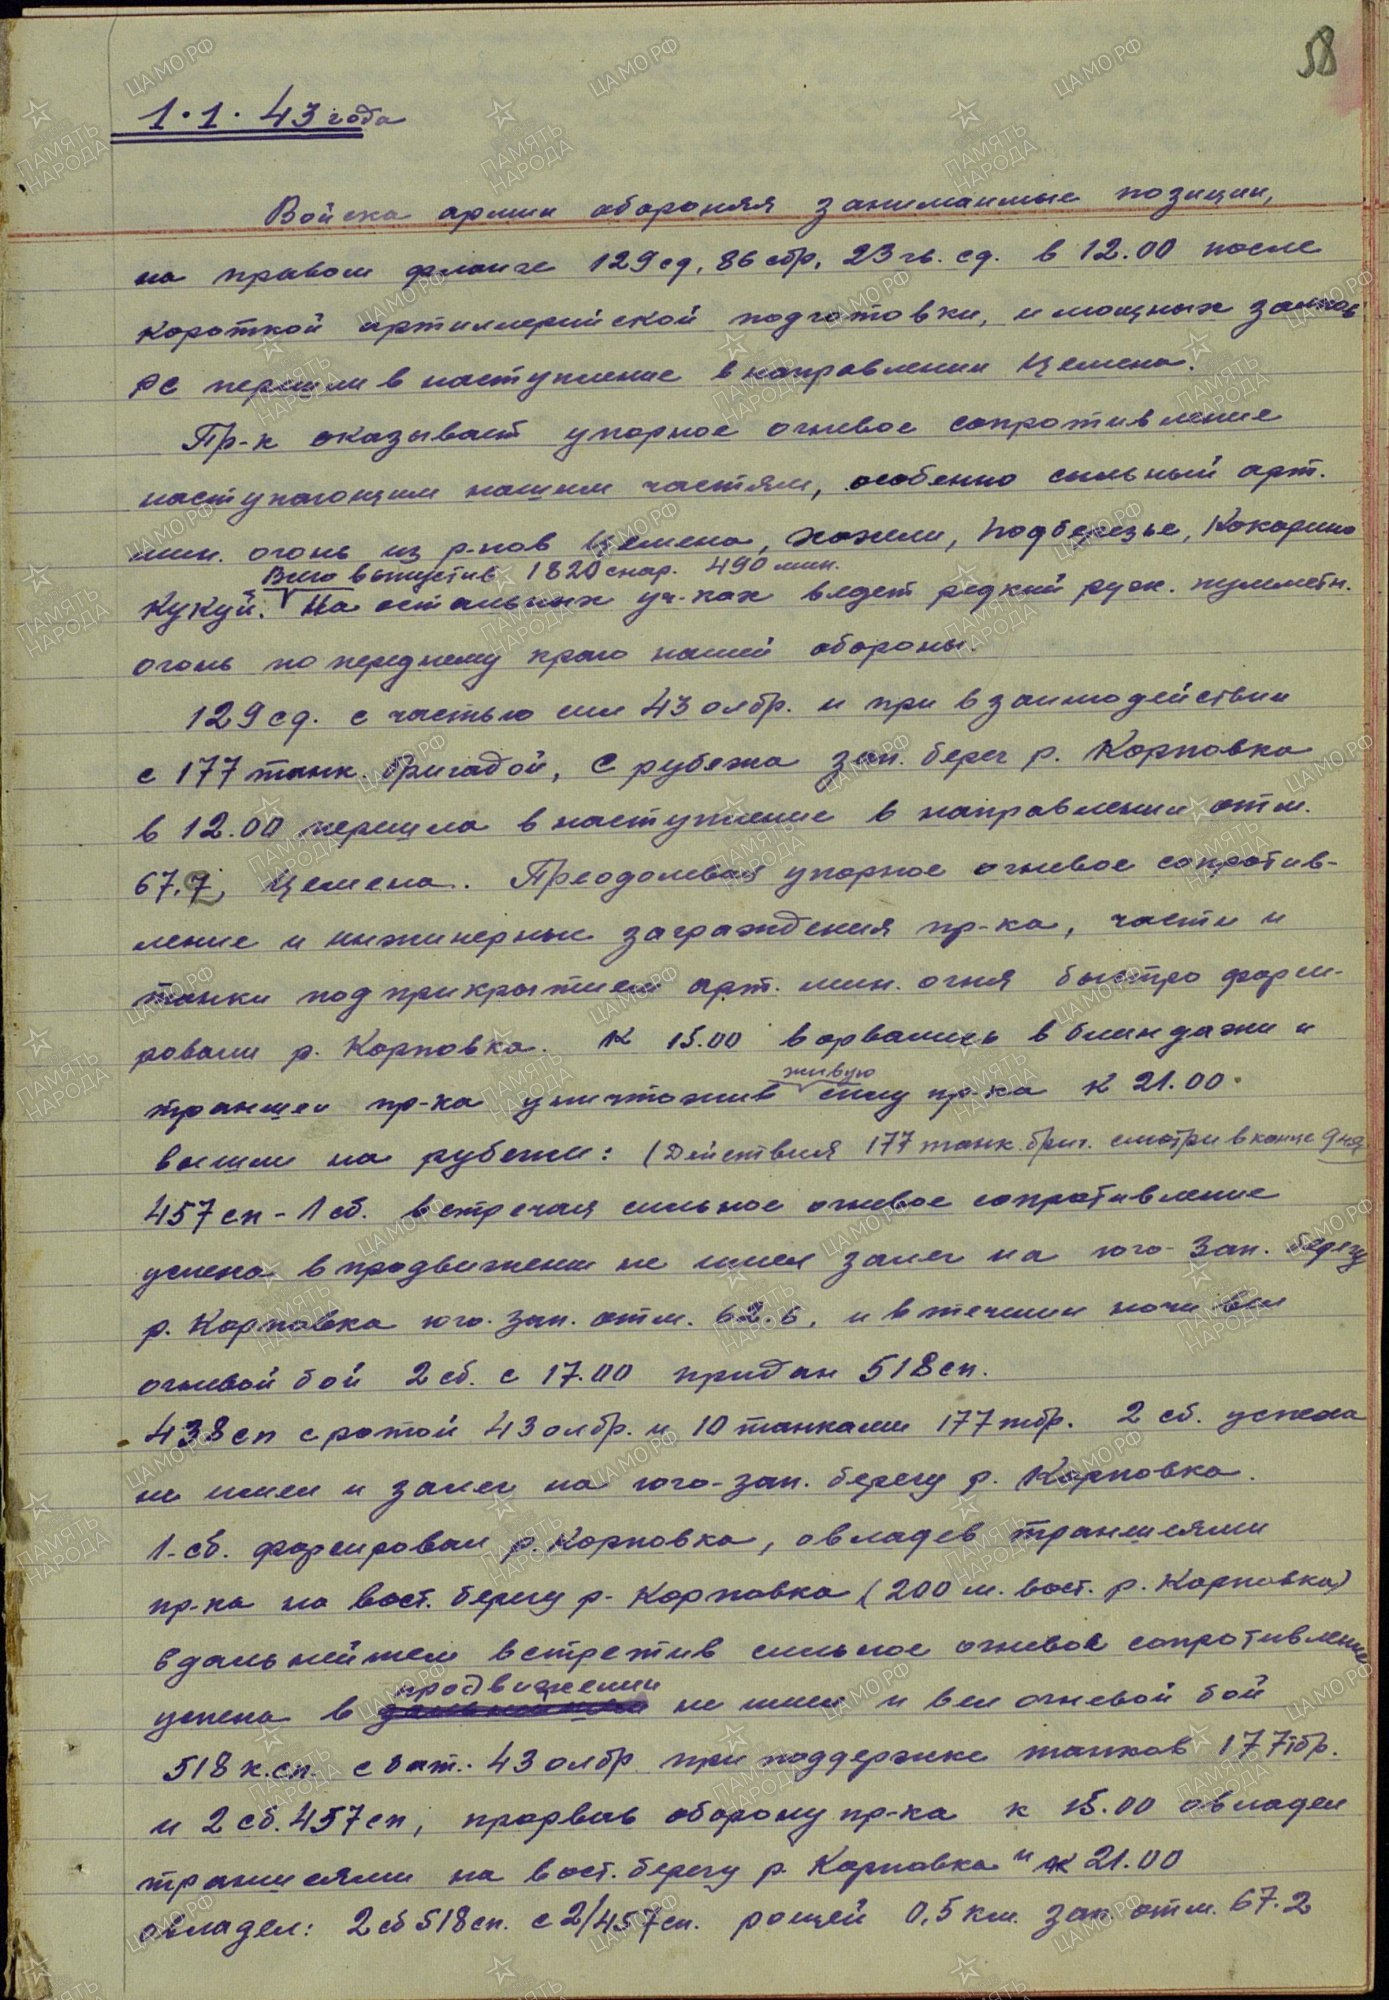 58
1.1.43 года
Войска армии обороняя занимаемые позиции,
на правом фланге 129 сд, 86 сбр, 23 гв. сд. в 12.00 после
короткой артиллерийской подготовки, и мощных залпов
РС перешли в наступление в направлении Цемена.
Пр-к оказывает упорное огневое сопротивление
наступающим нашим частям, особенно сильный арт.
мин. огонь из р-нов Цемена, Хохели, Подберезье, Кокорино
Всего выпустив 1820 снар. 490 мин.
Кукуй. На остальных уч-ках ведет редкий руж. пулеметн.
огонь по переднему краю нашей обороны.
129 сд. с частью сил 43 олбр. и при взаимодействии
с 177 танк. бригадой, с рубежа зап. берег р. Корповка
в 12.00 перешла в наступление в направлении отм.
67.2, Цемена. Преодолевая упорное огневое сопротив-
ление и инжинерные заграждения пр-ка, части и
танки под прикрытием арт. мин. огня быстро форси-
ровали р. Корповка. К 15.00 ворвались в блиндажи и
живую
траншеи пр-ка уничтожив силу пр-ка к 21.00.
вышли на рубежи: (Действия 177 танк. бриг. смотри в конце дня
457 сп - 1 сб. встречая сильное огневое сопротивление
успеха в продвижении не имел залег на юго-зап. берегу
р. Корповка юго-зап. отм. 62.6, и в течении ночи вел
огневой бой 2 сб. с 17.00 придан 518 сп.
438 сп с ротой 43 олбр. и 10 танками 177 тбр. 2 сб. успеха
не имел и залег на юго-зап. берегу р. Корповка.
1-сб. форсировал р. Корповка, овладев траншеями
пр-ка на вост. берегу р. Корповка (200 м. вост. р. Корповка)
в дальнейшем встретив сильное огневое сопротивление
продвижении
успеха в не имел и вел огневой бой
518 к.сп. с бат. 43 олбр при поддержке танков 177 тбр.
и 2 сб. 457 сп, прорвав оборону пр-ка к 15.00 овладел
траншеями на вост. берегу р. Корповка и к 21.00
овладел: 2 сб 518 сп. с 2/457 сп. рощей 0,5 км. зап. отм. 67.2